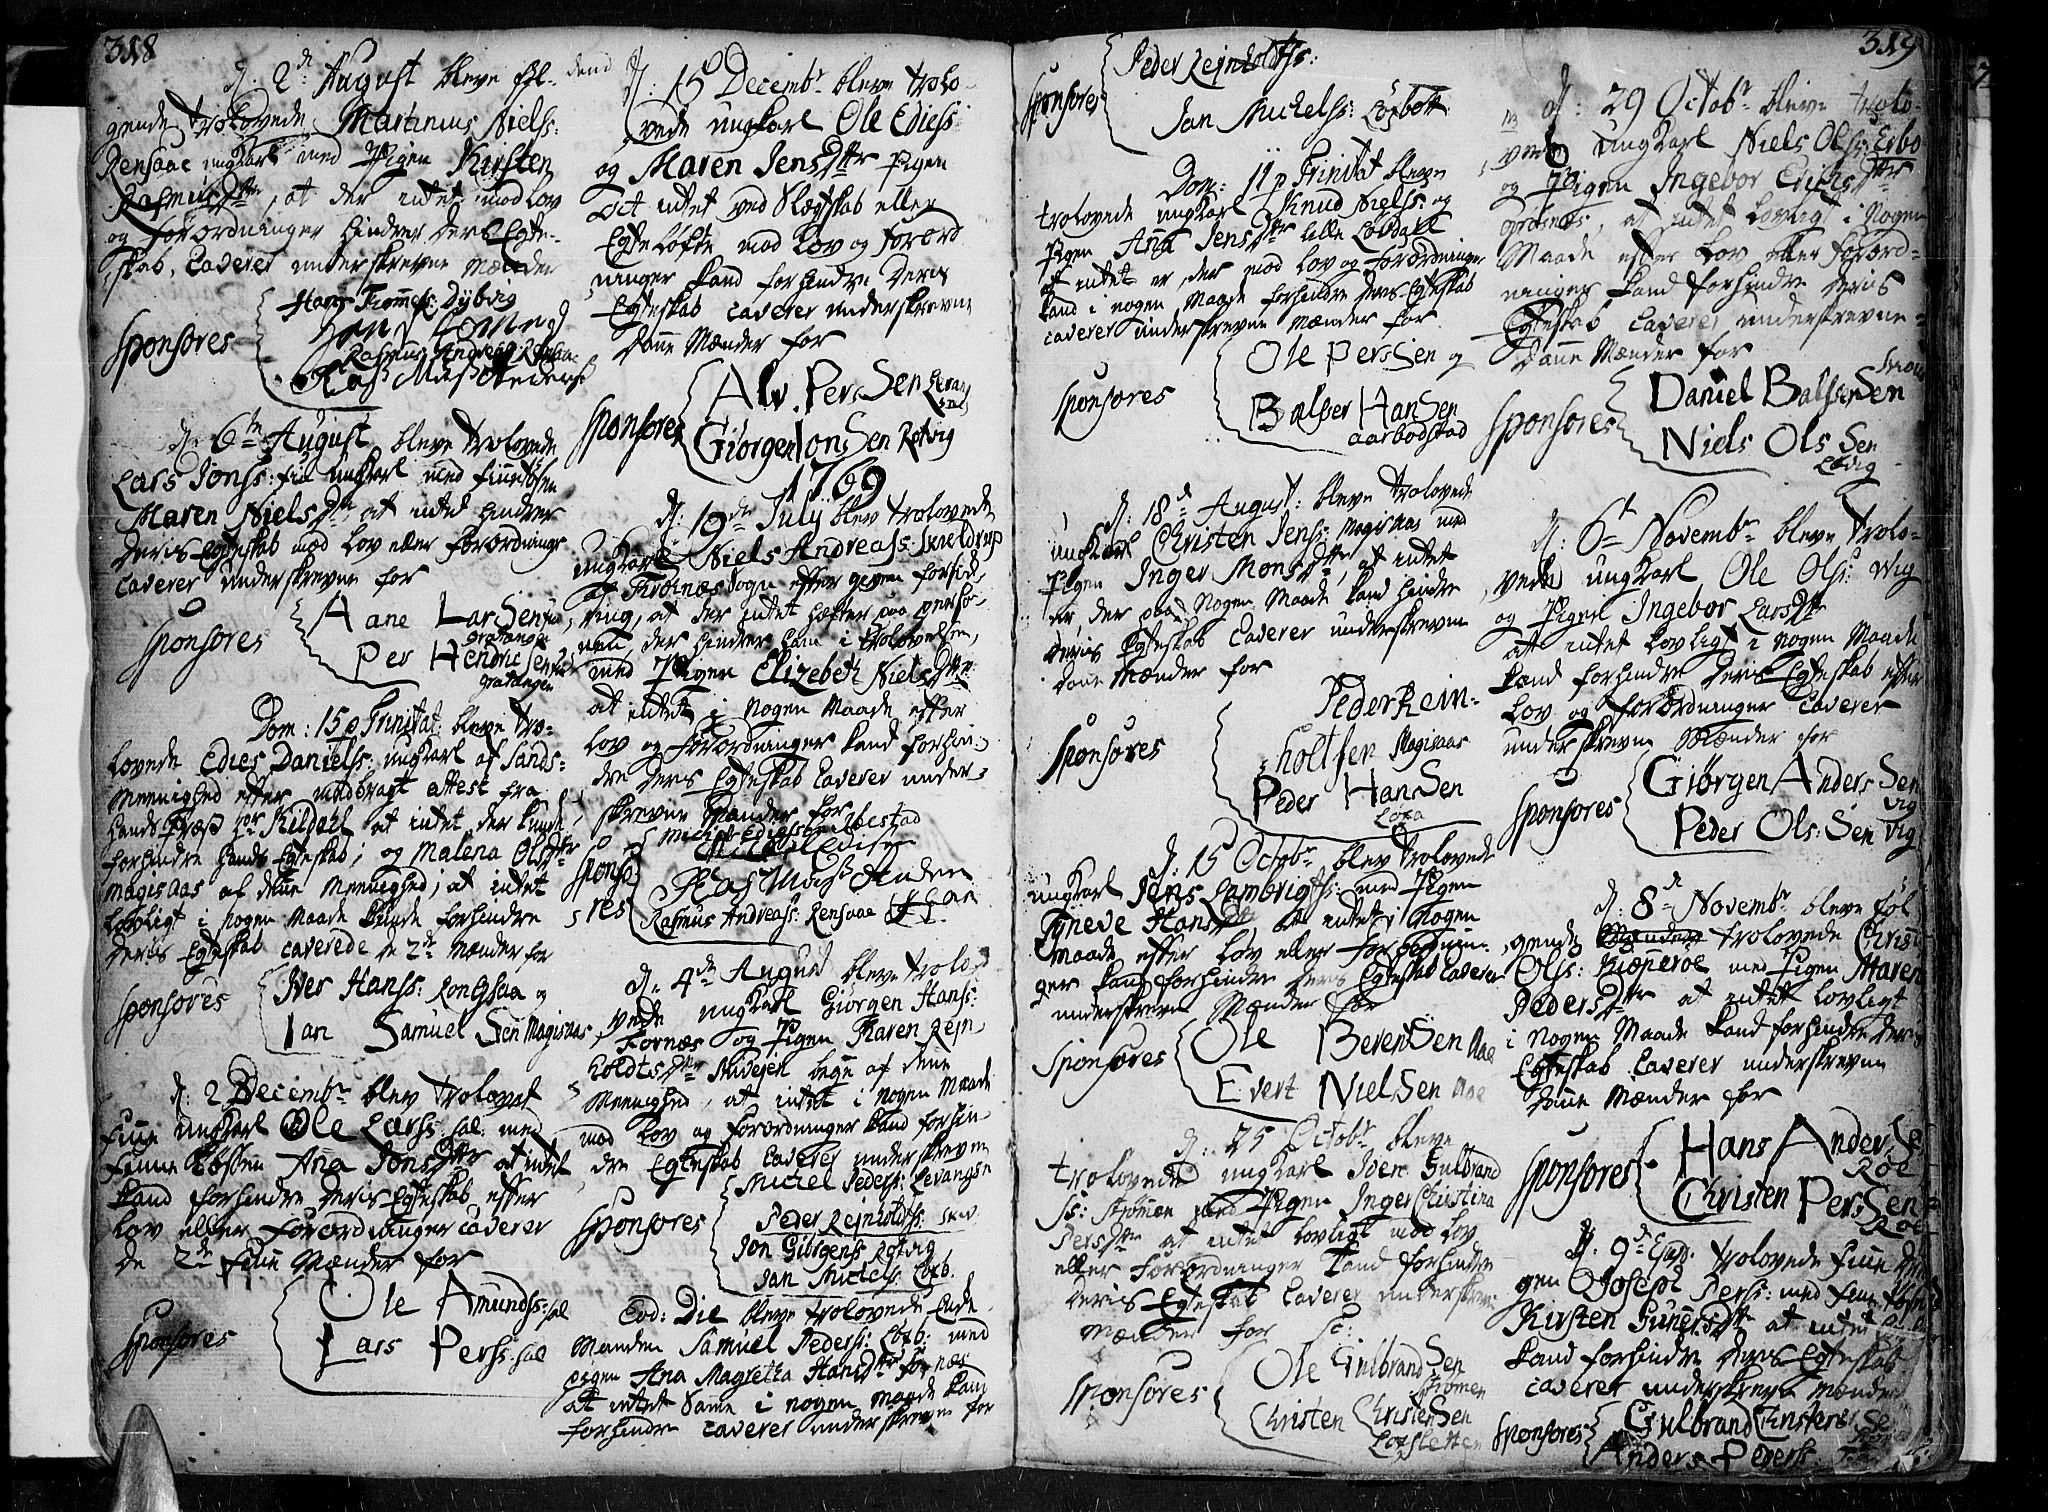 318
d: 2den August bleve føl-
gende trolovede Martinus Nielss:
Rensaae ungkarl med Pigen Kirsten
RasmusDttr, at der intet mod lov
og forordninger hindrer deres Egte-
skab, Caverer underskrevne Mænder
Sponsores
Hans Tommes: Dybvig
Rasmus Andreass: Rensaae
d: 6te August bleve trolovede
Lars Jonss: fin ungkarl med finnetøsen
Maren NielsDttr, at intet hindrer
deris Egteskab mod lov eller forordninger
Caverer underskrevne for
Sponsores
Aane LarSen
gratangen
Per HendricSen
gratangen
Dom: 15 p Trinitat: bleve tro-
lovede Edies Daniels: ungkarl af Sands-
Meenighed efter medbragt attest fra
hands Præst Hor Kildahl at intet der kunde
forhindre hands Egteskab; og Malena OlsDttr
Magisaas af denne Meenighed; at intet
lovligt i nogen Maade kunde forhindre
deris Egteskab caverede de 2de Mænder for
Sponsores
Iver Hanss: Rongsaa og
Ian SamuelSen Magisaas
d: 2 Decembr blev trolovet
finne ungkarl Ole Larss: sal: med
finne tøssen Ana JonsDttr at intet
kand forhindre deris Egteskab efter
lov eller forordninger caverer
de 2de finne Mænder for
Sponsores
Ole Amundss: sal
Lars Perss: sal
d: 15 Decembr bleve trolo-
vede ungkarl Ole Ediess
og Maren JensDttr Pigen
at intet ved Slægtskab eller
Egteløfte mod lov og forord
ninger kand forhindre deris
Egteskab caverer underskrevne
Danne Mænder for
Sponsores
Alv. PersSen
GiörgenJonsSen Rotvig
1769
d: 19de July blev trolovede
ungkarl Niels Andreass: Skneldrup
af Trotnæs Sogn efter given forsik-
ring, at der intet hefter paa perso-
nen, der hindrer ham i trolovelsen,
med Pigen Elizebeth NielsDttr
at intet i nogen Maade efter
lov og forordninger kand forhin-
dre deris Egteskab Caverer under-
skrevne Mænder for
Sponso
res
Michel Ediess Ibestad
Michel Edisen
Rasmus Andreass: Rensaae
d: 4de August bleve trolo-
vede ungkarl Giörgen Hanss:
Fornæs og Pigen Karen Rejn-
holdtsDttr Skivejen bege af denne
Meenighed, at intet i nogen Maade
mod lov og forordninger kand forhin-
dre Egteskab Caverer underskrevne
Sponsores
Michel Peders: Levangen
Peder Rejnholdtss: Skiv
Jon Giörgenss Rotvig
Jan Michels: Løxb.
Eod: Die bleve trolovede Enke
Manden Samuel Pederss: Løxb: med
pigen Ana Magretha HansDttr Fornæs
at intet Same i nogen Maade kand
forhindre caverer underskrevne for
319
Sponsores
Peder Rejnholdtss:
Jan Michelss: Løxbott
Dom: 11 p Trinitat bleve
trolovede ungkarl Knud Nielss: og
Pigen Ana JensDttr Lille Løvdall
at intet er, der mod lov og forordninger
kand i nogen Maade forhindre deris Egteskab
caverer underskrevne Mænder for
Sponsores
Ole PersSen og
Balser HanSen
aarbodstad
d: 18de August: bleve trolovede
ungkarl Christen Jenss: Magisaas med
Pigen Inger MonsDttr, at intet
er, der paa Nogen Maade kand hindre
deris Egteskab Caverer underskrevne
Danne Mænder for
Sponsores
Peder Rein-
holtsen Magisaas
Peder HanSen
Loxa
d: 15 Octobr blev trolovede
ungkarl Jens Lambrigtss: med Pigen
Synneve HansDttr, at intet i Nogen
Maade efter lov eller forordnin-
ger kand forhindre deris Egteskab Caverer
underskrevne Mænder for
Sponsores
Ole BerenSen Aae
Evert NielSen Aae
d: 25 Octobr bleve
trolovede ungkarl Iven Gulbrand
Ss: Strømen med Pigen Inger Christina
PersDttr at intet lovligt mod lov
eller forordninger kand forhindre
deris Egteskab Caverer underskrevne
Mænder for Sc:
Sponsores
Ole GulbrandSen
Strømen
Christen ChristenSen
d: 29 Octobr bleve trolo-
vede ungkarl Niels Olss: Erbo
og Pigen Ingebor EdiesDttr
at intet lovligt i Nogen
Maade efter lov eller forord-
ninger kand forhindre deris
Egteskab Caverer underskrevne
Danne Mænder for
Sponsores
Daniel BalserSen
Niels OlsSen
Løvig
d: 6te Novembr bleve trolo-
vede ungkarl Ole Olss: Vig
og Pigen Ingebor LarsDttr
at intet lovligt i nogen Maade
kand forhindre deris Egteskab efter
lov og forordninger caverer
underskrevne Mænder for
Sponsores
Giörgen AndersSen
Vig
Peder Ols:Sen Vig
d: 8de Novembr bleve føl
gende Mænder trolovede Christen
Olss: Kiæperøe med Pigen Maren
PedersDttr at intet lovligt
i Nogen Maade kand forhindre deris
Egteskab Caverer underskrevne
Danne Mænder for
Sponsores
Hans AndersSen
Roe
Christen PersSen
Roe
d: 9de Ejusd. trolovede finne
gen Joseph Perss: med finne tøsen
Kirsten GunnersDttr at intet
kand forhindre deris Egteskab
caverer underskrevne Mænder
Sponsores
Gulbrand Christensen
Anders Pederss: